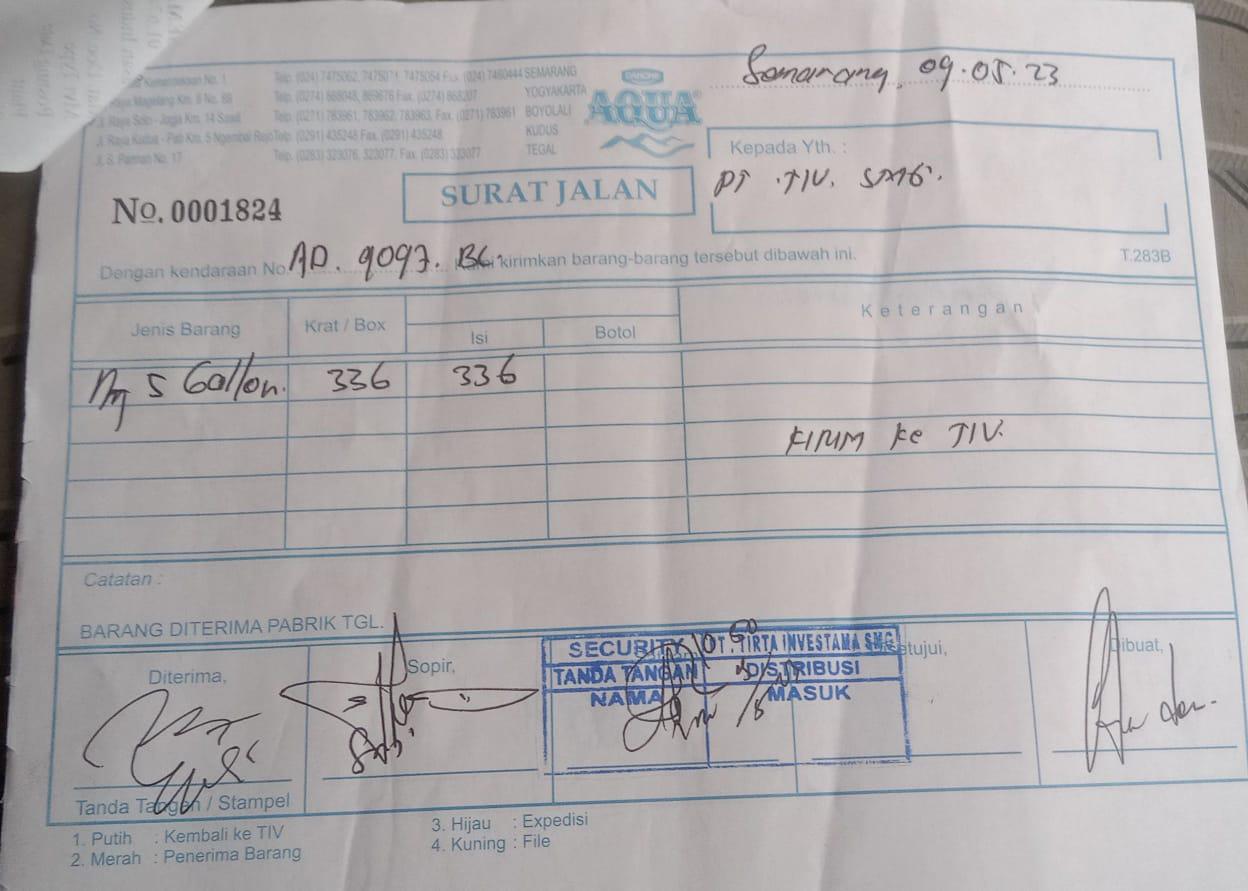 Kemerdekaan No. 1 Telp. (024) 7475062, 7475071, 7475064 Fax. (024) 7460444 SEMARANG
Raya Magelang Km. 8 No. 89 Telp. (0274) 868048, 869676 Fax. (0274) 868207 YOGYAKARTA
Jl. Raya Solo - Jogja Km. 14 Sawit Telp. (0271) 783961, 783962, 783963, Fax. (0271) 783961 BOYOLALI
Jl. Raya Kudus - Pati Km. 5 Ngembal Rejo Telp. (0291) 435248 Fax. (0291) 435248 KUDUS
Jl. S. Parman No. 17 Telp. (0283) 323076, 323077, Fax. (0283) 323077 TEGAL
DANONE
AQUA
Semarang, 09.05.23
Kepada Yth. :
PT .TIV. SMG.
No. 0001824
SURAT JALAN
Dengan kendaraan No. AD. 9097. BC. kirimkan barang-barang tersebut dibawah ini.
T.283B
Jenis Barang Krat / Box Isi Botol Keterangan
5 Gallon. 336 336
KIRIM ke TIV.
Catatan :
BARANG DITERIMA PABRIK TGL.
Diterima, Sopir, Dibuat,
SECURITY PT. TIRTA INVESTAMA SMG
TANDA TANGAN DISTRIBUSI
NAMA MASUK
Tanda Tangan / Stampel
1. Putih : Kembali ke TIV
2. Merah : Penerima Barang
3. Hijau : Expedisi
4. Kuning : File